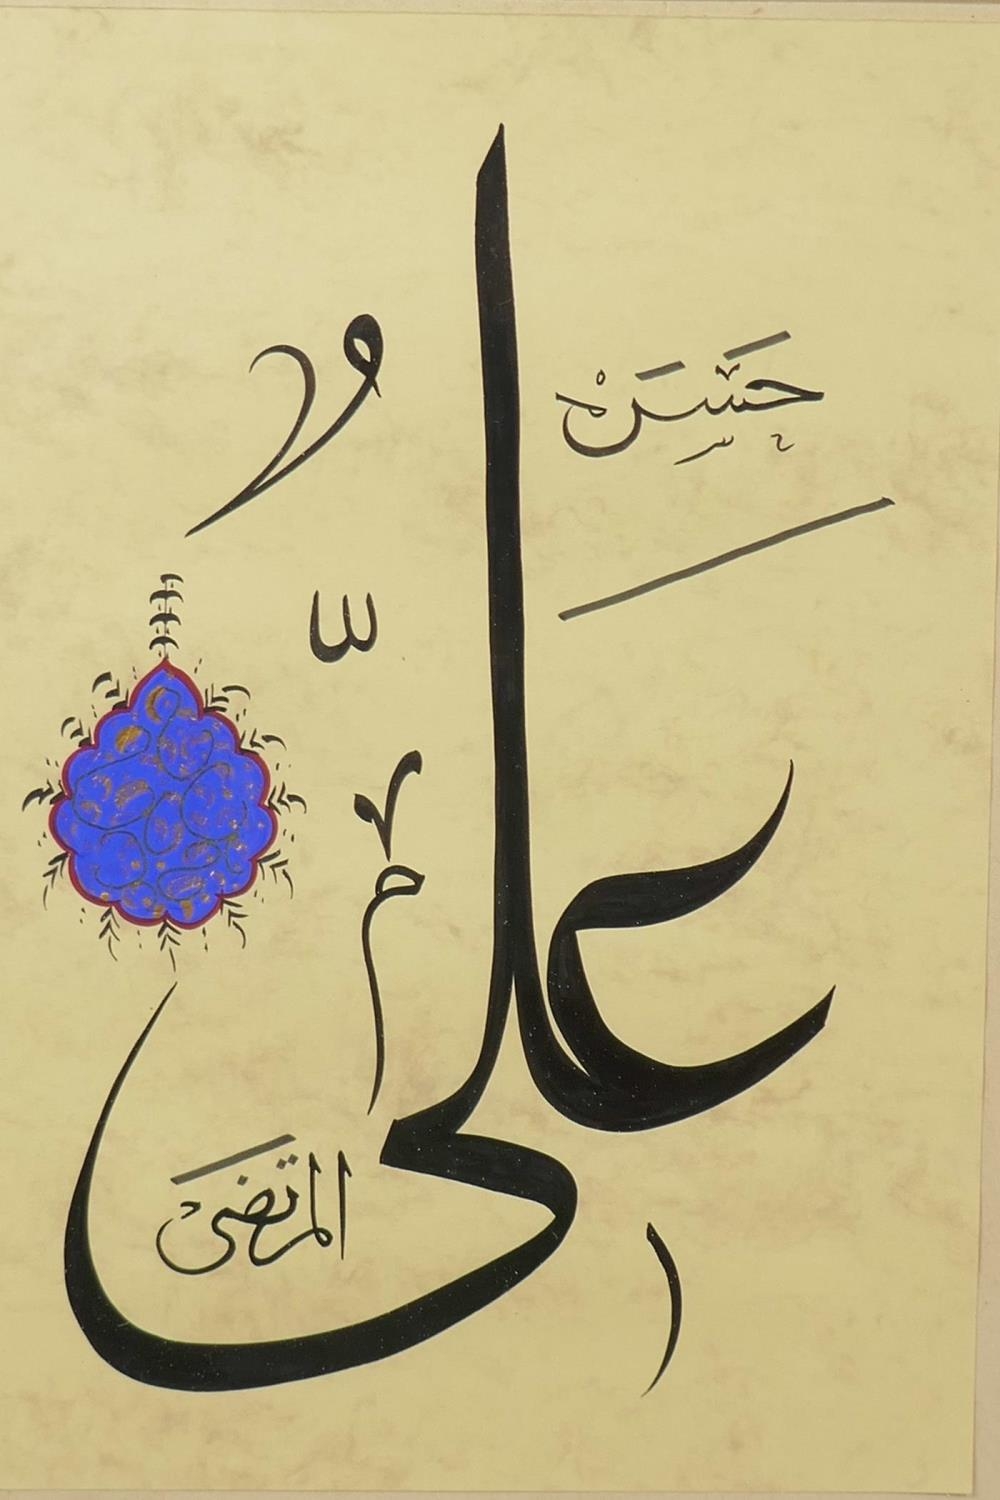 حسن
علي
المرتضى